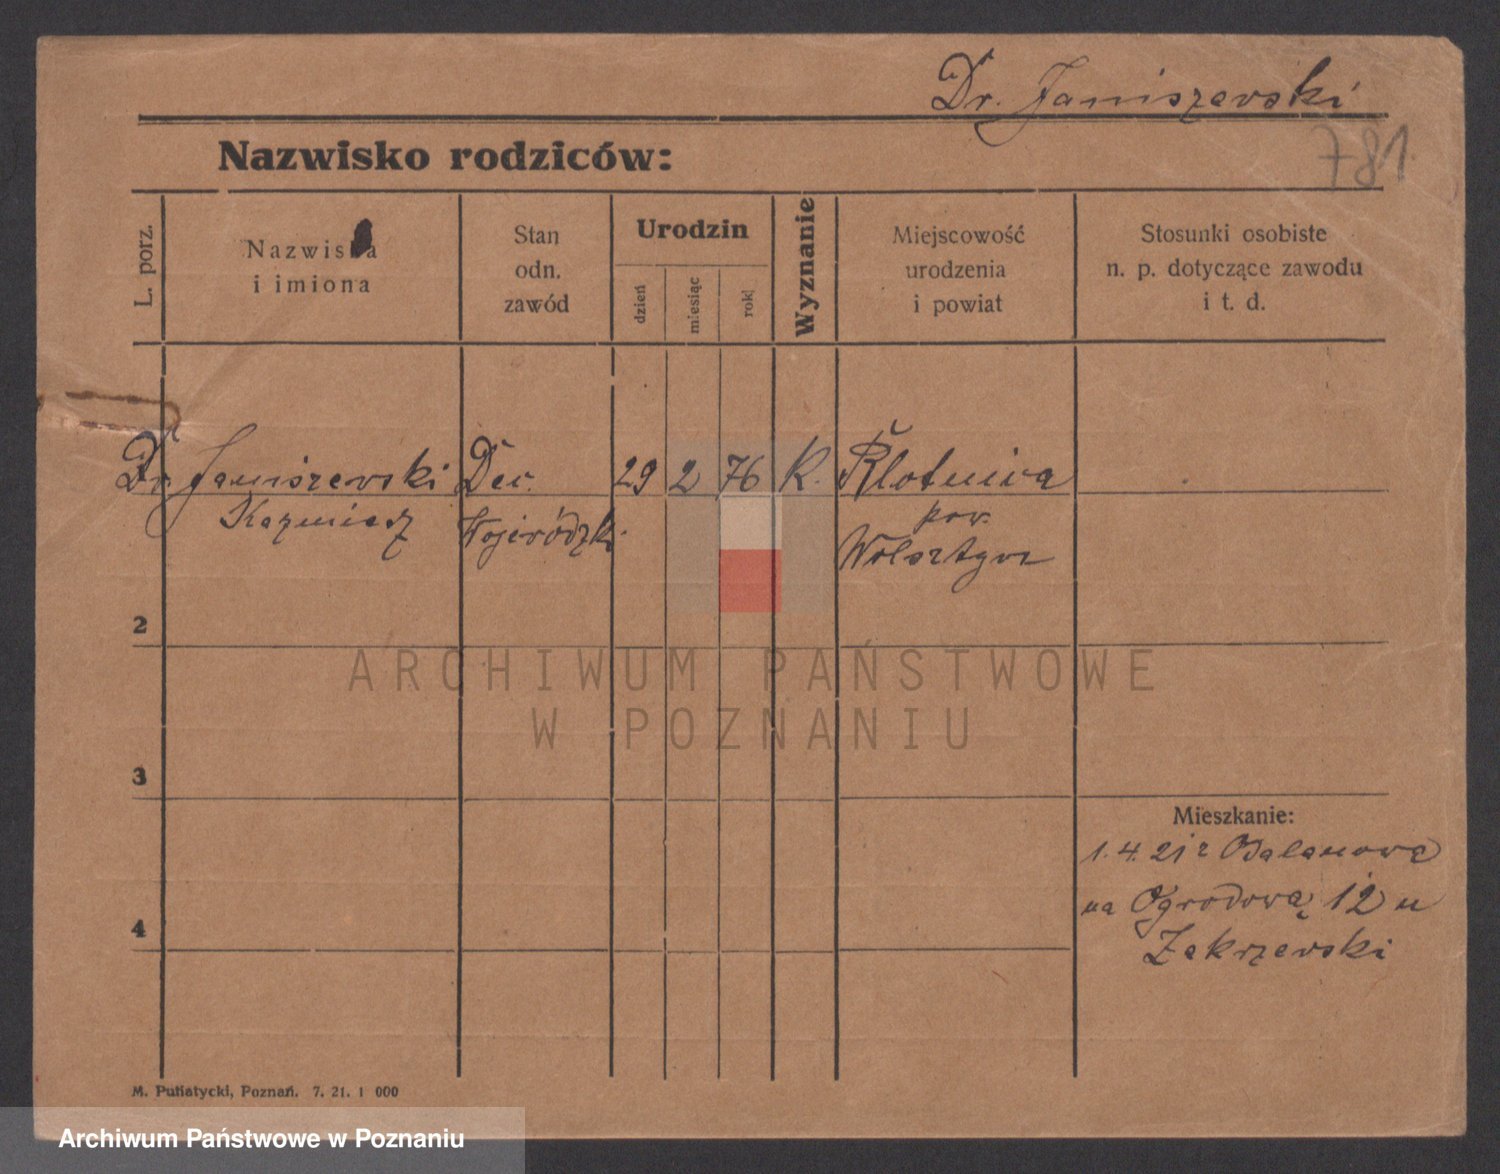 Dr. Janiszewski
781
Nazwisko rodziców:
L. porz.
Nazwiska
i imiona
Stan
odn.
zawód
Urodzin
dzień
miesiąc
rok
Wyznanie
Miejscowość
urodzenia
i powiat
Stosunki osobiste
n. p. dotyczące zawodu
i t. d.
Dr. Janiszewski
29 2 76 K.
pow.
Wolsztyn
2
ARCHIWUM PAŃSTWOWE
W POZNANIU
3
Mieszkanie:
1.4.21
na Ogrodową 12 u
4
Zakrzewski
M. Putiatycki, Poznań. 7. 21. 1 000
Archiwum Państwowe w Poznaniu